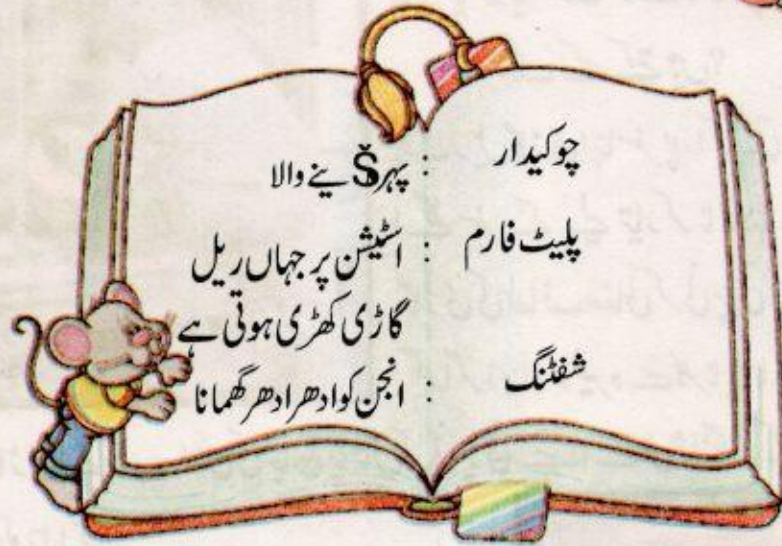 چوکیدار : پہرŠینے والا
پلیٹ فارم : اسٹیشن پر جہاں ریل
گاڑی کھڑی ہوتی ہے
شفٹنگ : انجن کو ادھر ادھر گھمانا